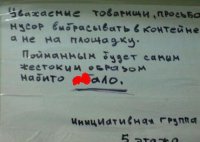 Уважаемые товарищи, просьба
мусор выбрасывать в контейне
а не на площадку.
Пойманным будет самым
жестоким образом
набито ало.
инициативная группа
5 этажа